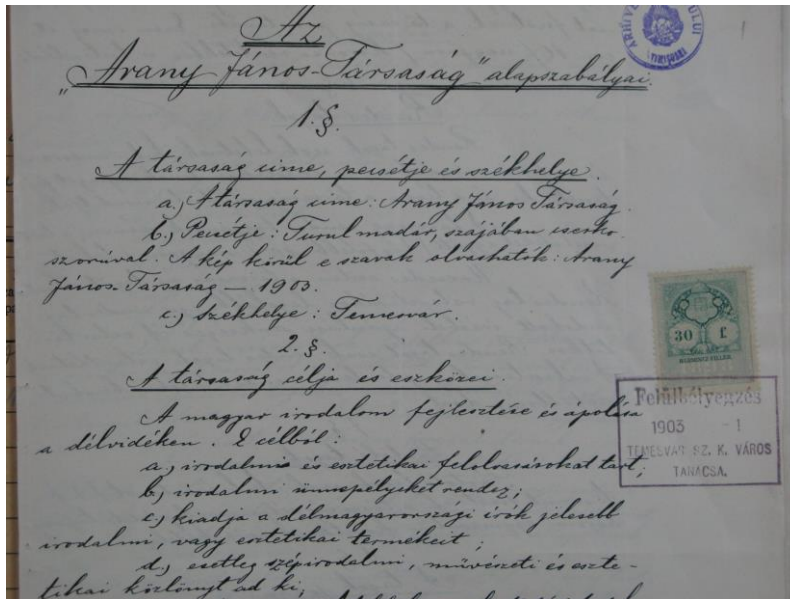 Az
„Arany János-Társaság" alapszabályai.
1.§.
A társaság címe, pecsétje és székhelye.
a.) A társaság címe: Arany János Társaság.
b.) Pecsétje: Turul madár, szájában cserko-
szorúval. A kép körül e szavak olvashatók: Arany
János-Társaság — 1903.
c.) Székhelye: Temesvár.
2.§.
A társaság célja és eszközei.
A magyar irodalom fejlesztése és ápolása
a délvidéken. E célból:
a.) irodalmi és esztetikai felolvasásokat tart;
b.) irodalmi ünnepélyeket rendez;
c.) kiadja a délmagyarországi írók jelesebb
irodalmi, vagy esztetikai termékeit;
d.) esetleg szépirodalmi, művészeti és eszte-
tikai közlönyt ad ki;
30 f.
Felülbélyegzés
1903 -1
TEMESVÁR SZ. K. VÁROS
TANÁCSA.